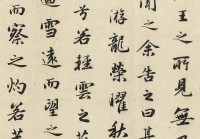 王之所見無乃
聞之余告之曰其
游龍榮曜秋
兮若輕雲之
雪遠而望之
而察之灼若